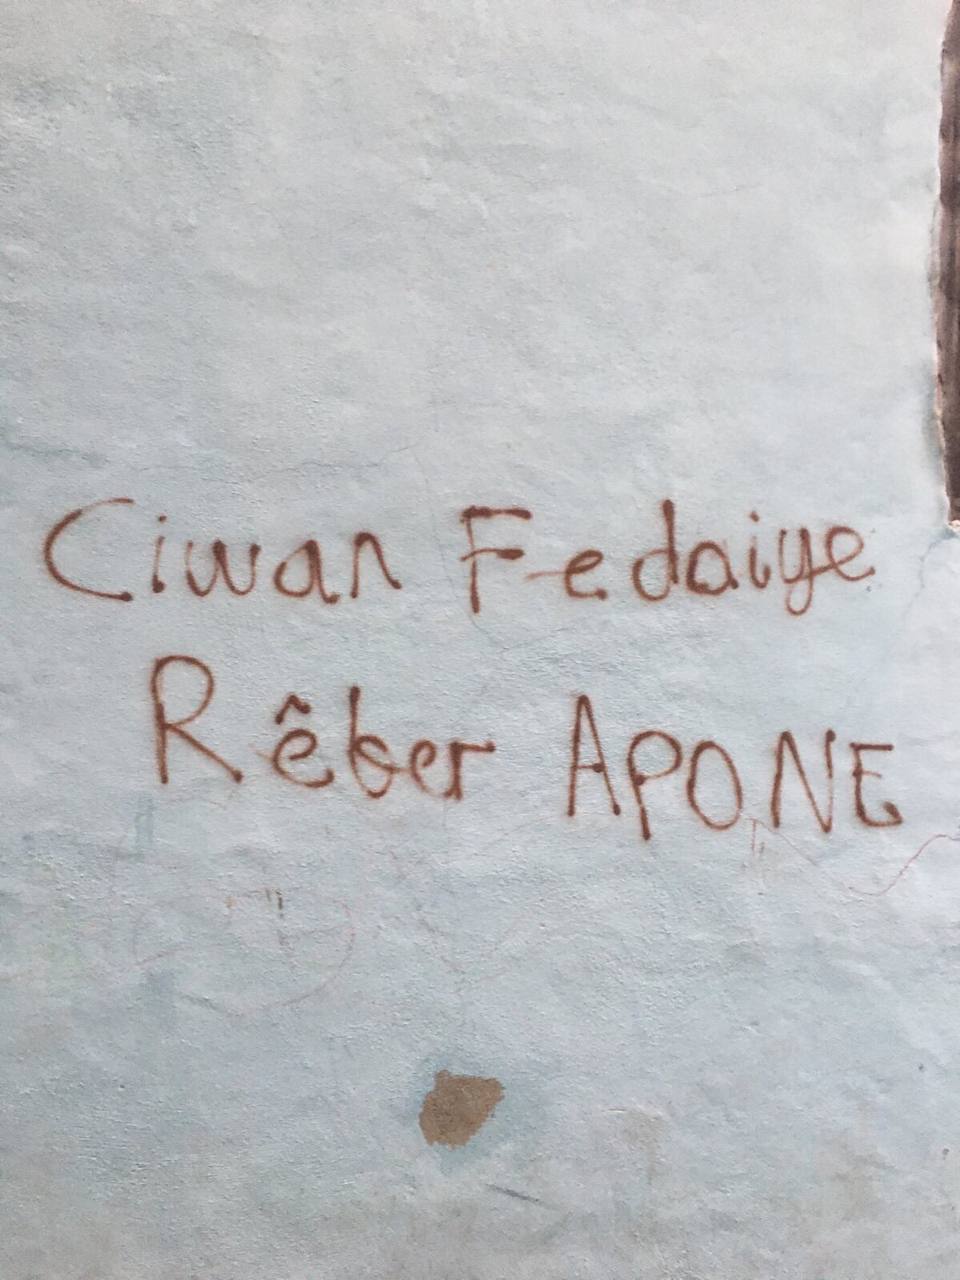 Ciwan Fedaiye
Rêber APONE